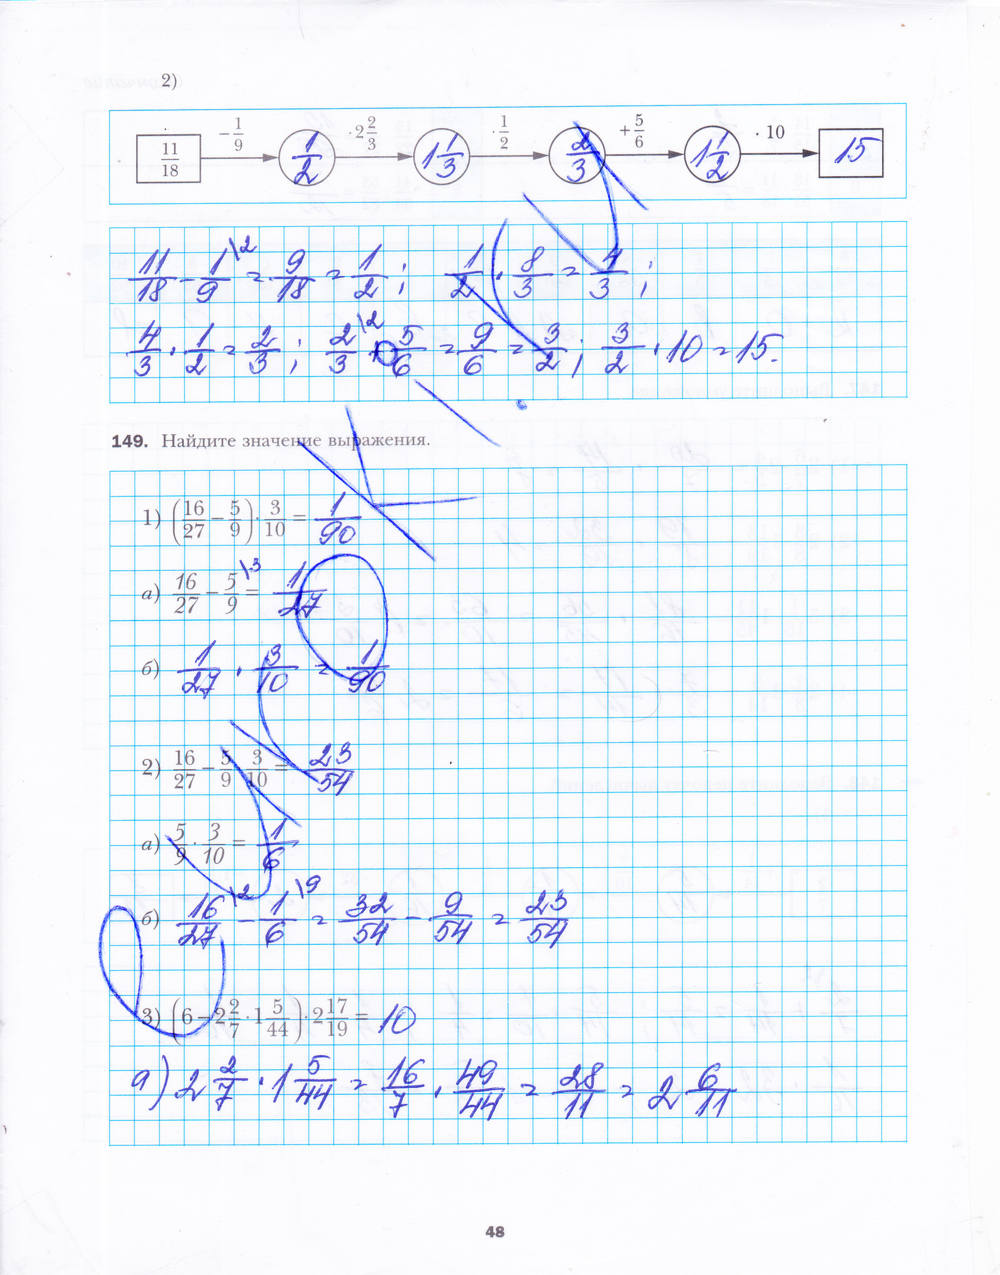 2)
11/18 −1/9 1/2 ·2 2/3 1 1/3 ·1/2 2/3 +5/6 1 1/2 ·10 15
11/18 − 1/9\2 = 9/18 = 1/2; 1/2 · 8/3 = 4/3;
4/3 · 1/2 = 2/3; 2/3\2 + 5/6 = 9/6 = 3/2; 3/2 · 10 = 15.
149. Найдите значение выражения.
1) (16/27 − 5/9) · 3/10 = 1/90
а) 16/27 − 5/9\3 = 1/27
б) 1/27 · 3/10 = 1/90
2) 16/27 − 5/9 · 3/10 = 23/54
а) 5/9 · 3/10 = 1/6
б) 16/27\2 − 1/6\9 = 32/54 − 9/54 = 23/54
3) (6 − 2 2/7 · 1 5/44) · 2 17/19 = 10
а) 2 2/7 · 1 5/44 = 16/7 · 49/44 = 28/11 = 2 6/11
48